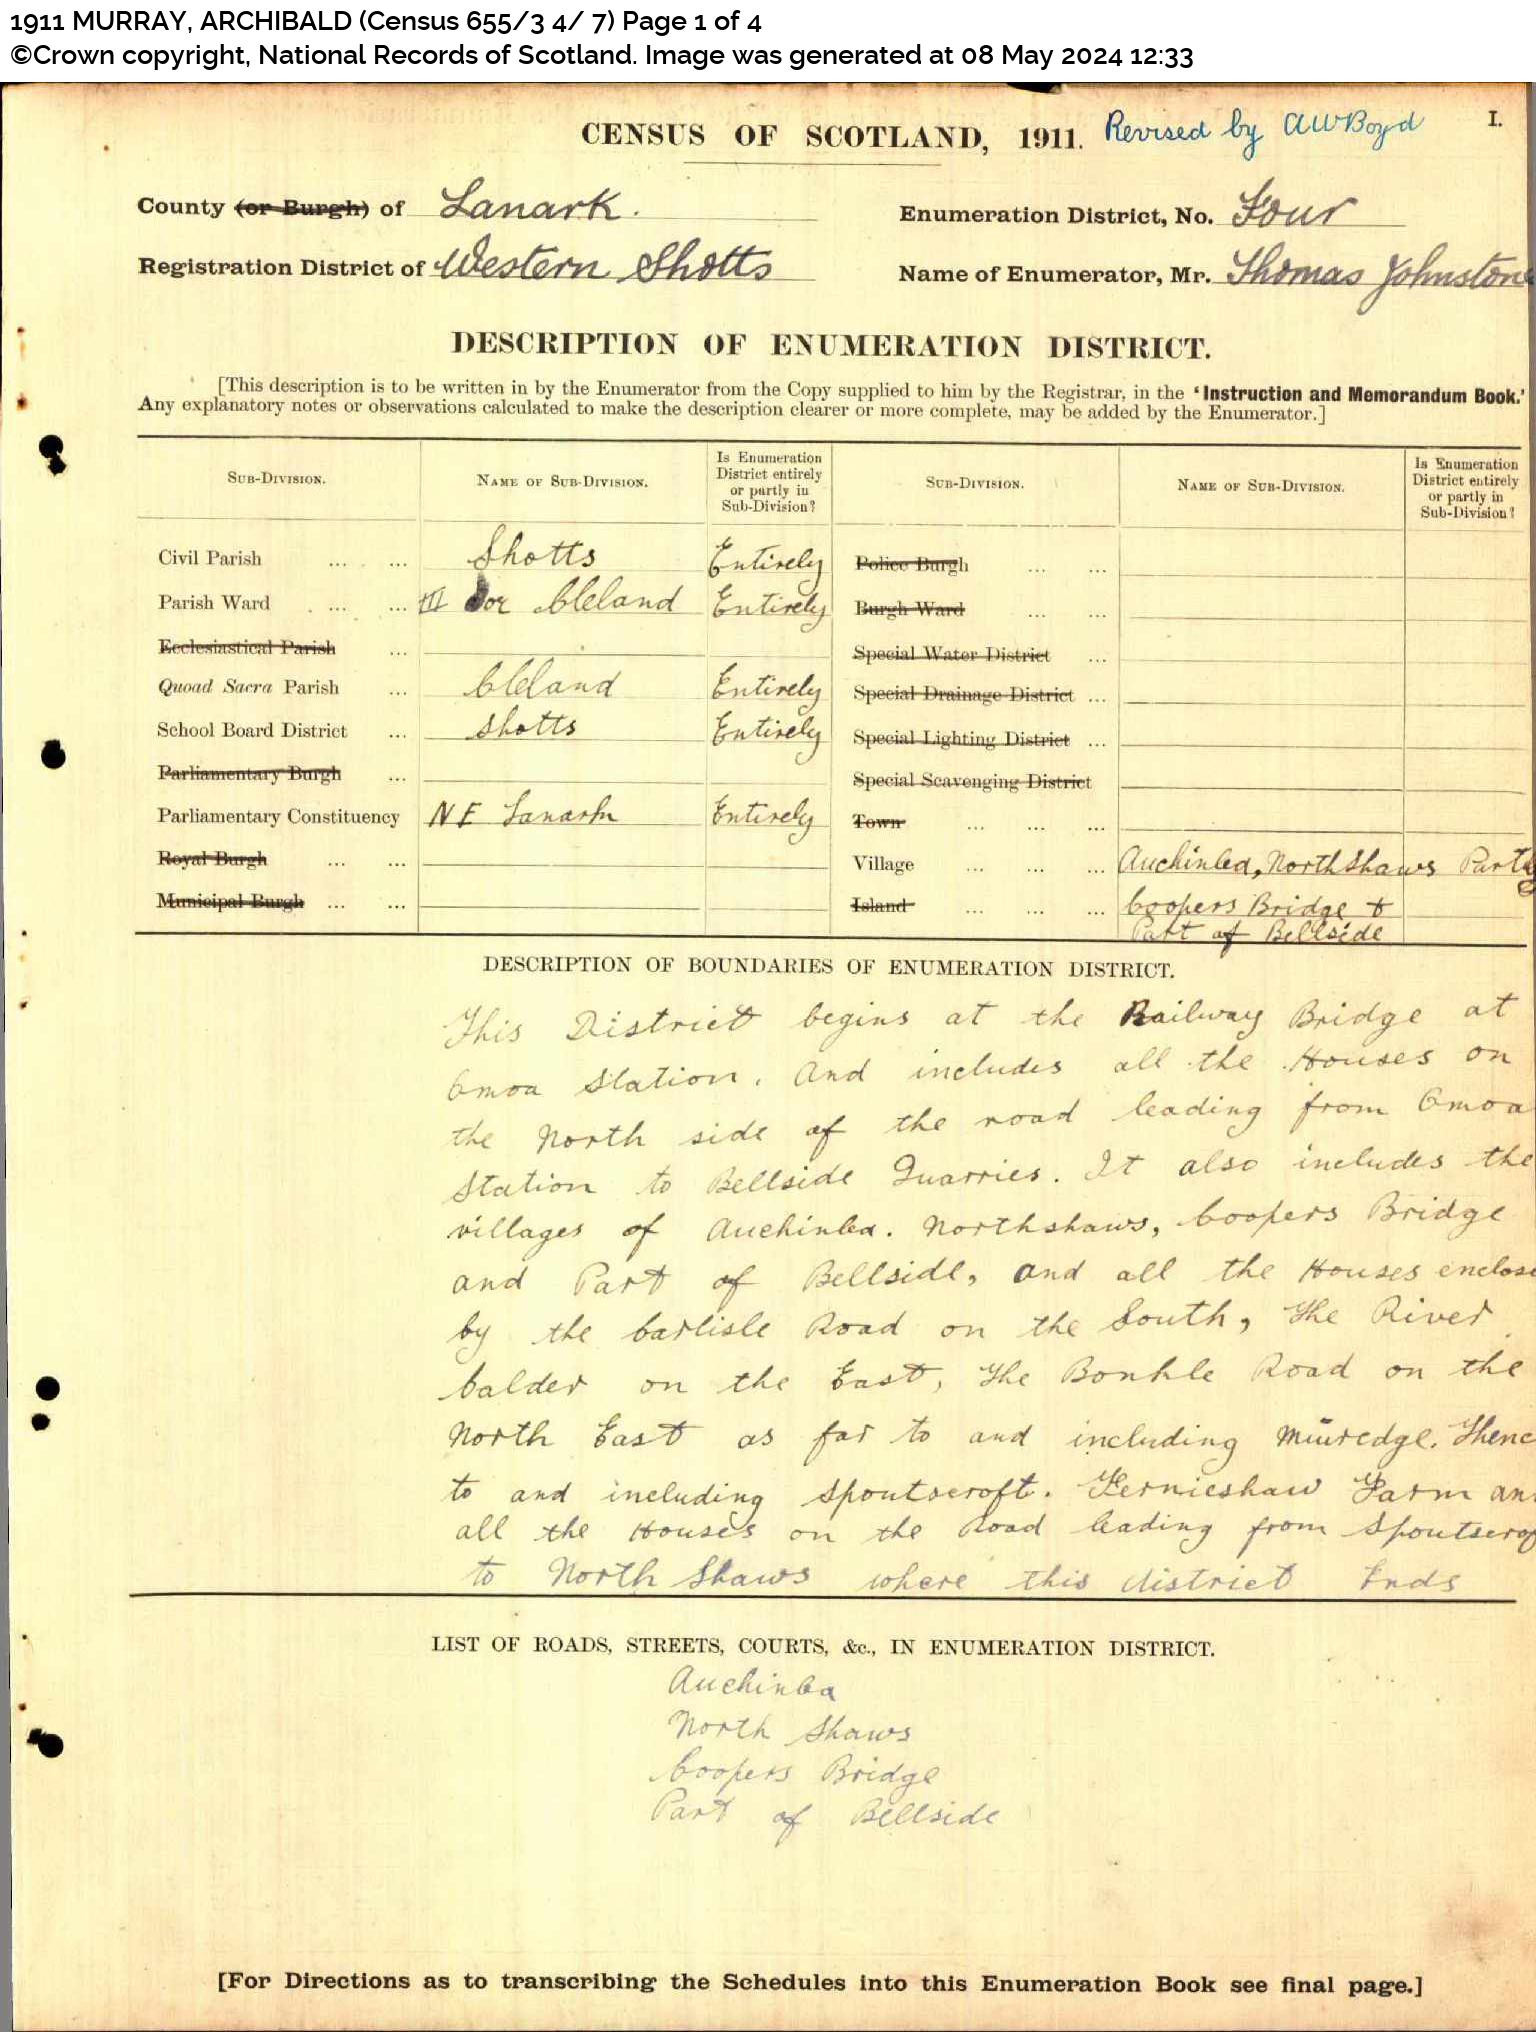 1911 MURRAY, ARCHIBALD (Census 655/3 4/ 7) Page 1 of 4
©Crown copyright, National Records of Scotland. Image was generated at 08 May 2024 12:33
CENSUS OF SCOTLAND, 1911. Revised by AWBoyd I.
County (or Burgh) of Lanark. Enumeration District, No. Four
Registration District of Western Shotts Name of Enumerator, Mr. Thomas Johnstone
DESCRIPTION OF ENUMERATION DISTRICT.
[This description is to be written in by the Enumerator from the Copy supplied to him by the Registrar, in the 'Instruction and Memorandum Book.'
Any explanatory notes or observations calculated to make the description clearer or more complete, may be added by the Enumerator.]
SUB-DIVISION. NAME OF SUB-DIVISION. Is Enumeration District entirely or partly in Sub-Division? SUB-DIVISION. NAME OF SUB-DIVISION. Is Enumeration District entirely or partly in Sub-Division?
Civil Parish ... ... Shotts Entirely Police Burgh ... ...
Parish Ward ... ... III or Cleland Entirely Burgh Ward ... ...
Ecclesiastical Parish ... Special Water District ...
Quoad Sacra Parish ... Cleland Entirely Special Drainage District ...
School Board District ... Shotts Entirely Special Lighting District ...
Parliamentary Burgh ... Special Scavenging District
Parliamentary Constituency NE Lanark Entirely Town ... ... ...
Royal Burgh ... ... Village ... ... ... Auchinlea, Northshaws Partly
Municipal Burgh ... ... Island ... ... ... Coopers Bridge &
Part of Bellside
DESCRIPTION OF BOUNDARIES OF ENUMERATION DISTRICT.
This District begins at the Railway Bridge at
Omoa Station. And includes all the Houses on
the North side of the road leading from Omoa
Station to Bellside Quarries. It also includes the
villages of Auchinlea. Northshaws, Coopers Bridge
and Part of Bellside, and all the Houses enclose
by the Carlisle Road on the South, The River
Calder on the East, The Bonkle Road on the
North East as far to and including Muiredge. Thenc
to and including Spoutscroft. Fernieshaw Farm an
all the Houses on the Road leading from Spoutscrof
to North Shaws where this district Ends
LIST OF ROADS, STREETS, COURTS, &c., IN ENUMERATION DISTRICT.
Auchinlea
North Shaws
Coopers Bridge
Part of Bellside
[For Directions as to transcribing the Schedules into this Enumeration Book see final page.]